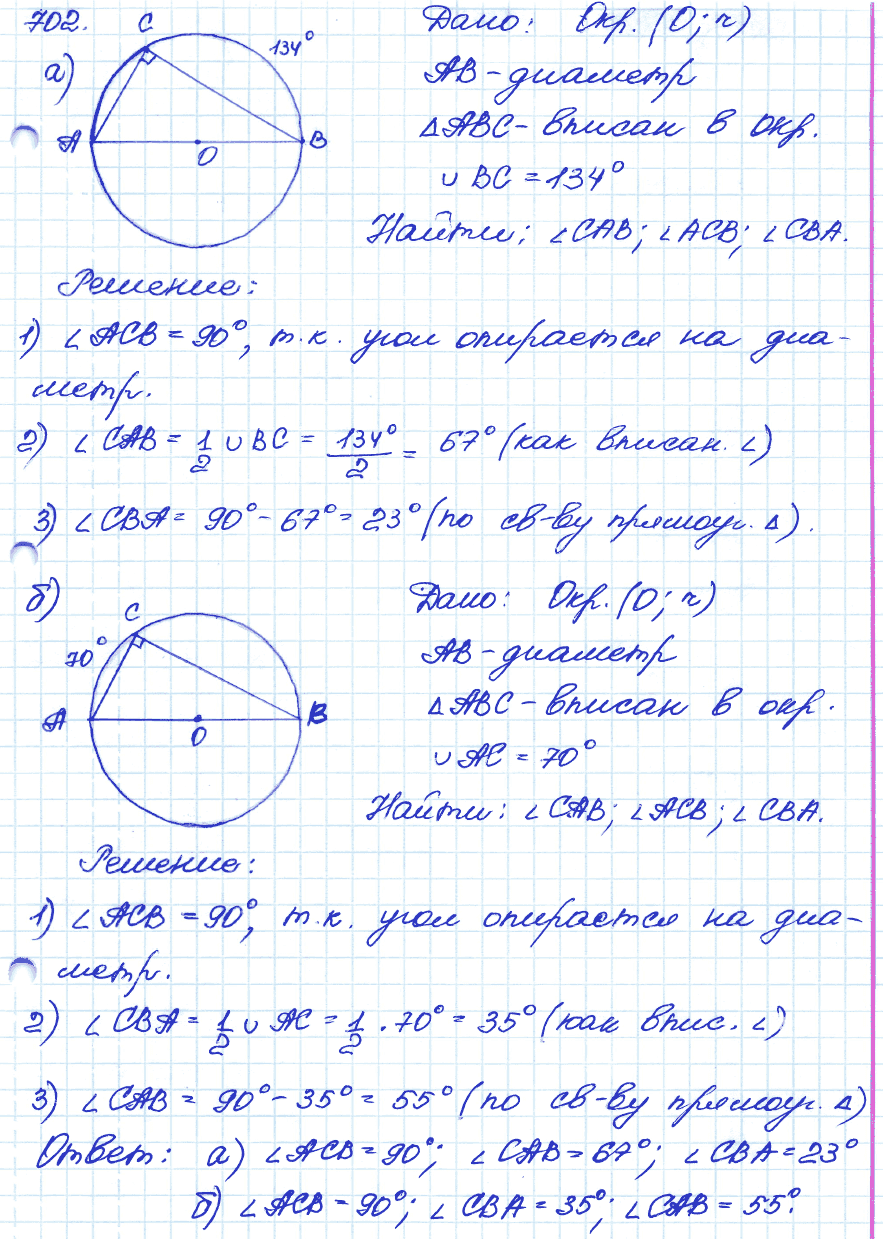 702.
а)
C
134°
A
O
B
Дано: Окр. (O; r)
AB - диаметр
△ABC - вписан в окр.
∪ BC = 134°
Найти: ∠CAB; ∠ACB; ∠CBA.
Решение:
1) ∠ACB = 90°, т.к. угол опирается на диа-
метр.
2) ∠CAB = 1/2 ∪ BC = 134°/2 = 67° (как вписан. ∠)
3) ∠CBA = 90° - 67° = 23° (по св-ву прямоуг. △).
б)
C
70°
A
O
B
Дано: Окр. (O; r)
AB - диаметр
△ABC - вписан в окр.
∪ AC = 70°
Найти: ∠CAB; ∠ACB; ∠CBA.
Решение:
1) ∠ACB = 90°, т.к. угол опирается на диа-
метр.
2) ∠CBA = 1/2 ∪ AC = 1/2 · 70° = 35° (как впис. ∠)
3) ∠CAB = 90° - 35° = 55° (по св-ву прямоуг. △)
Ответ: а) ∠ACB = 90°; ∠CAB = 67°; ∠CBA = 23°
б) ∠ACB = 90°; ∠CBA = 35°; ∠CAB = 55°.